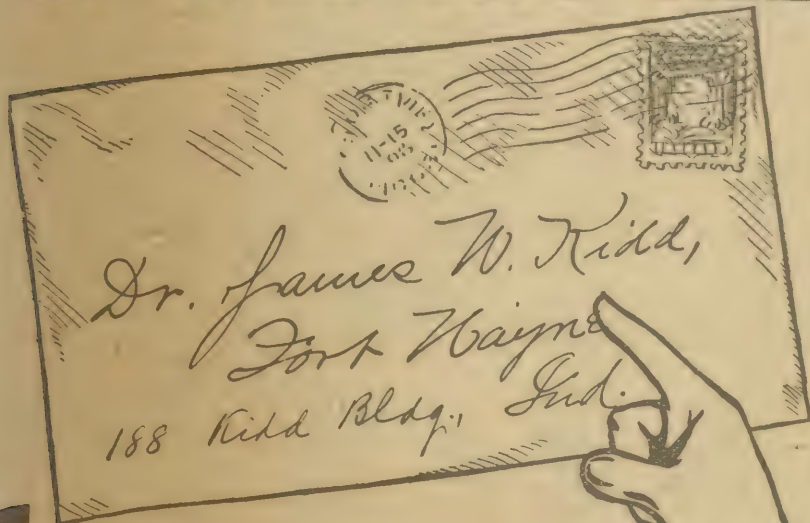 11-15
Dr. James W. Kidd,
Fort Wayne
188 Kidd Bldg., Ind.